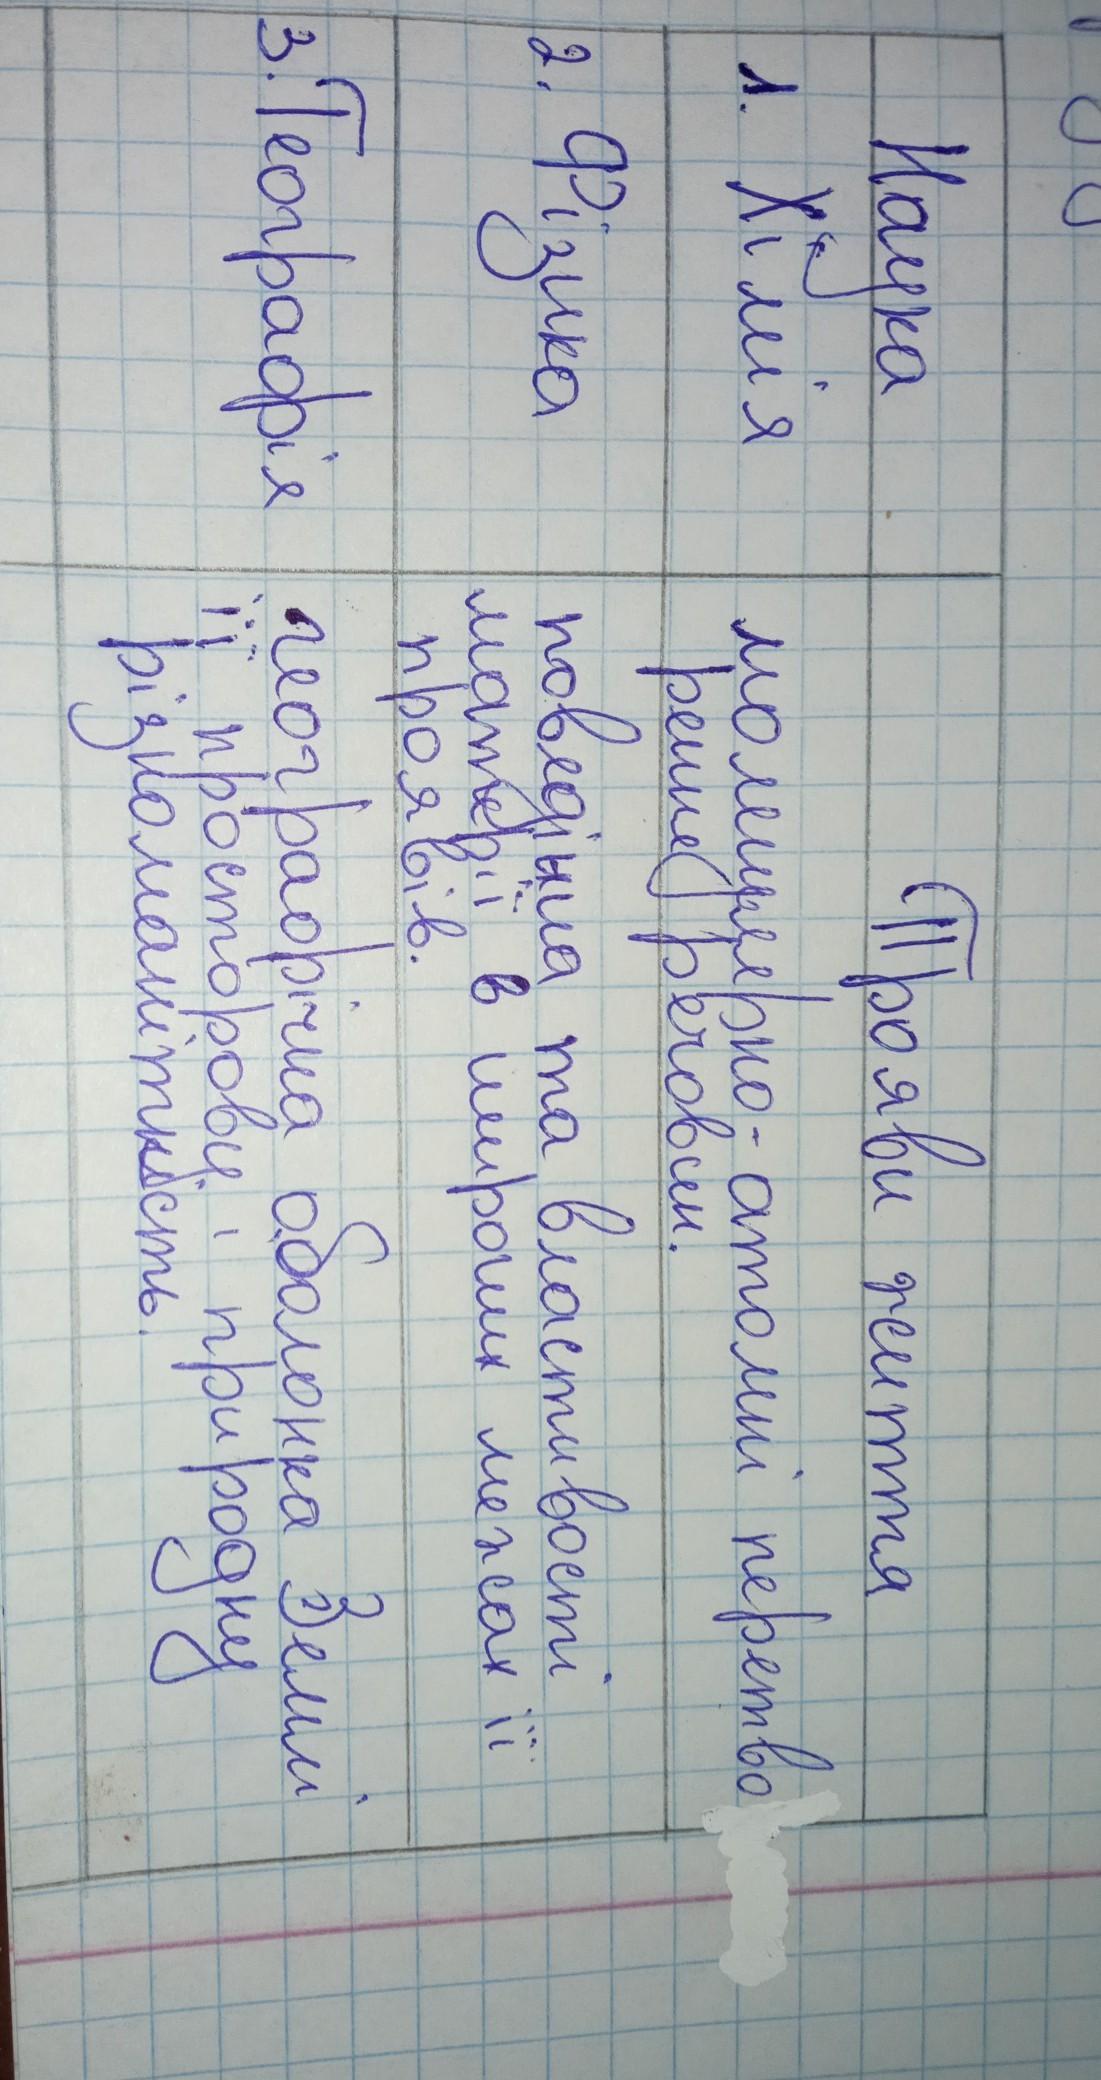 Наука
Прояви життя
1. Хімія
молекулярно-атомні перетво
рення речовен.
2. Фізика
поведінка та властивості
матерії в широких межах її
проявів.
3. Географія
географічна оболонка Землі
її просторову і природну
різноманітність.